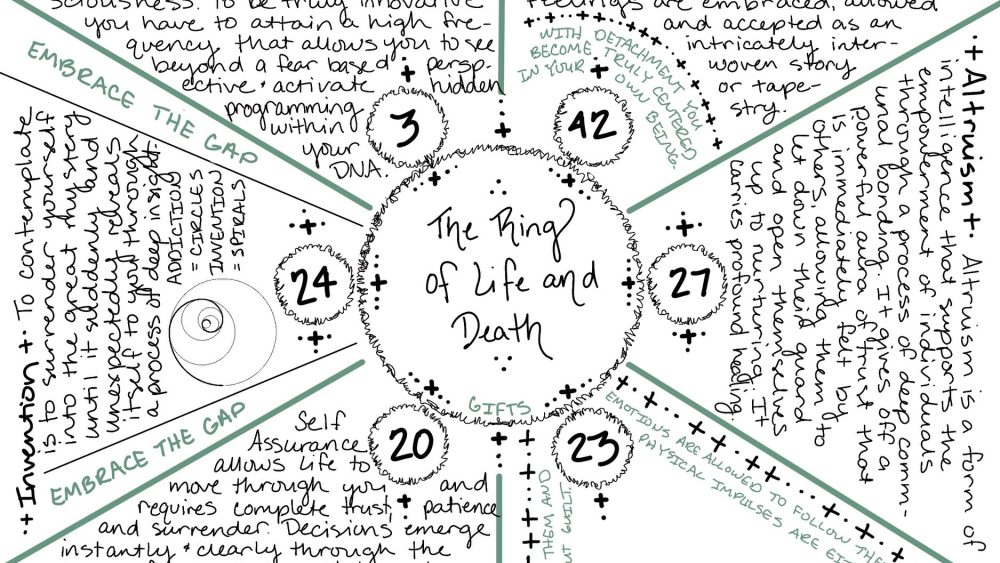 sciousness. To be truly innovative
you have to attain a high fre-
quency that allows you to see
beyond a fear based persp-
ective + activate hidden
programming
within
your
DNA.
3
Feelings are embraced, allowed
and accepted as an
intricately inter-
woven story
or tape-
stry.
WITH DETACHMENT YOU
BECOME TRULY CENTERED
IN YOUR OWN BEING.
42
EMBRACE THE GAP
Invention + To contemplate
is to surrender yourself
into the great mystery
until it suddenly and
unexpectedly reveals
itself to you through
a process of deep insight.
ADDICTION
= CIRCLES
INVENTION
= SPIRALS
24
The Ring
of Life and
Death
GIFTS
27
+ Altruism + Altruism is a form of
intelligence that supports the
empowerment of individuals
through a process of deep comm-
unal bonding. It gives off a
powerful aura of trust that
is immediately felt by
others, allowing them to
let down their guard
and open themselves
up to nurturing. It
carries profound healing.
EMBRACE THE GAP
20
Self
Assurance
allows life to
move through you and
requires complete trust, patience
and surrender. Decisions emerge
instantly + clearly through the
23
THEM AND
UT GUILT.
EMOTIONS ARE ALLOWED TO FOLLOW THE
PHYSICAL IMPULSES ARE EIT-